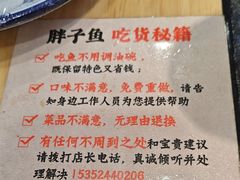 胖子鱼 吃货秘籍
吃鱼不用调油碗，
既保留特色又省钱；
口味不满意，免费重做，请告
知身边工作人员为您提供帮助
菜品不满意，无理由退换
有任何不周到之处和宝贵建议
请拨打店长电话，真诚倾听并处
理解决 15352440206